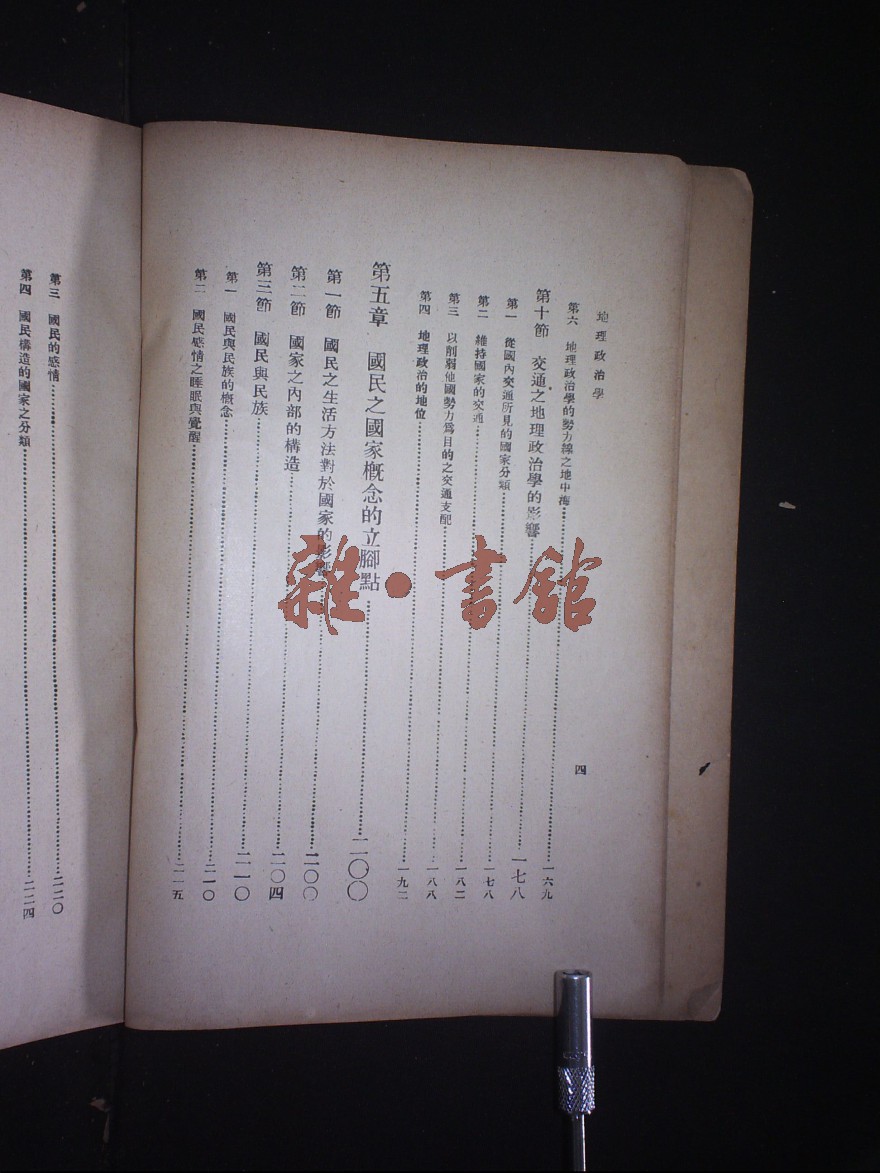 地理政治學
四
第六　地理政治學的勢力線之地中海……一六九
第十節　交通之地理政治學的影響……一七八
第一　從國內交通所見的國家分類……一七八
第二　維持國家的交通……一八二
第三　以削弱他國勢力爲目的之交通支配……一八八
第四　地理政治的地位……一九二
第五章　國民之國家概念的立腳點……二〇〇
第一節　國民之生活方法對於國家的影響……二〇〇
第二節　國家之內部的構造……二〇四
第三節　國民與民族……二一〇
第一　國民與民族的概念……二一〇
第二　國民感情之睡眠與覺醒……二一五
第三　國民的感情……二二〇
第四　國民構造的國家之分類……二二四
雜·書館